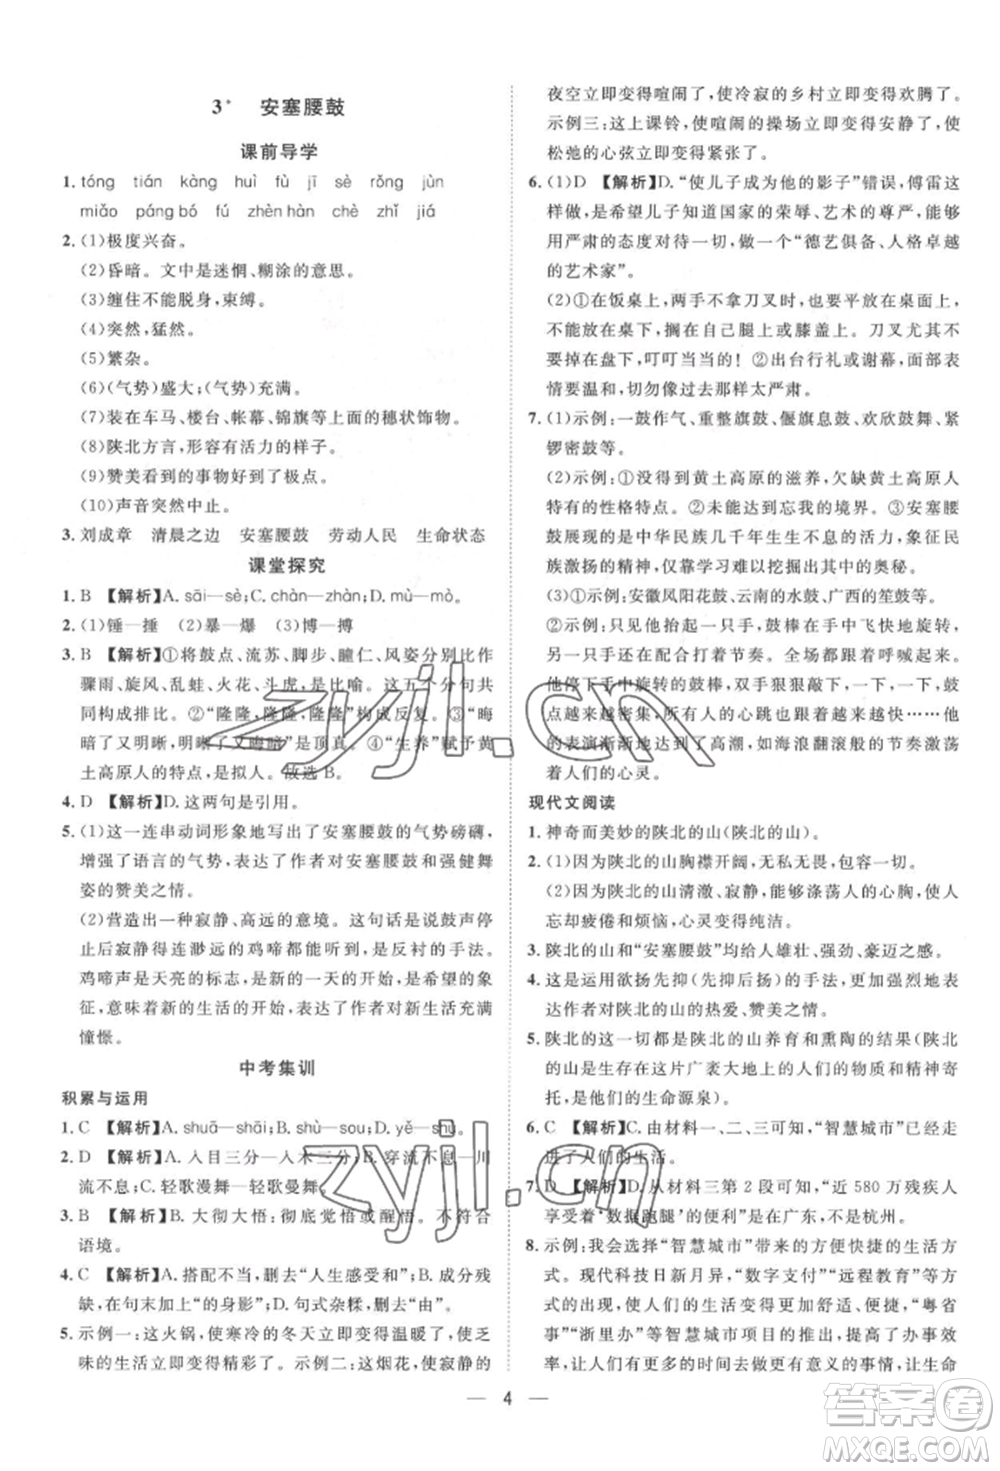 3* 安塞腰鼓
课前导学
1. tóng tián kàng huì fù jī sè rǒng jùn
miǎo páng bó fú zhèn hàn chè zhǐ jiá
2. (1)极度兴奋。
(2)昏暗。文中是迷惘、糊涂的意思。
(3)缠住不能脱身,束缚。
(4)突然,猛然。
(5)繁杂。
(6)(气势)盛大;(气势)充满。
(7)装在车马、楼台、帐幕、锦旗等上面的穗状饰物。
(8)陕北方言,形容有活力的样子。
(9)赞美看到的事物好到了极点。
(10)声音突然中止。
3. 刘成章 清晨之边 安塞腰鼓 劳动人民 生命状态
课堂探究
1. B 【解析】A. sāi—sè;C. chàn—zhàn;D. mù—mò。
2. (1)锤—捶 (2)暴—爆 (3)博—搏
3. B 【解析】①将鼓点、流苏、脚步、瞳仁、风姿分别比作
骤雨、旋风、乱蛙、火花、斗虎,是比喻。这五个分句共
同构成排比。②“隆隆,隆隆,隆隆”构成反复。③“晦
暗了又明晰,明晰了又晦暗”是顶真。④“生养”赋予黄
土高原人的特点,是拟人。故选 B。
4. D 【解析】D. 这两句是引用。
5. (1)这一连串动词形象地写出了安塞腰鼓的气势磅礴,
增强了语言的气势,表达了作者对安塞腰鼓和强健舞
姿的赞美之情。
(2)营造出一种寂静、高远的意境。这句话说鼓声停
止后寂静得连渺远的鸡啼都能听到,是反衬的手法。
鸡啼声是天亮的标志,是新的一天的开始,也是新的象
征,新的生活的开始,表达了作者对新生活充满
憧憬。
中考集训
积累与运用
1. C 【解析】A. shuā—shāi;B. shù—sou;D. yě—shú。
2. D 【解析】A. 入目三分—入木三分;B. 穿流不息—川
流不息;C. 轻歌漫舞—轻歌曼舞。
3. B 【解析】B. 大彻大悟:彻底觉悟或醒悟。不符合
语境。
4. C 【解析】A. 搭配不当,删去“人生感受和”;B. 成分残
缺,在句末加上“的身影”;D. 句式杂糅,删去“由”。
5. 示例一:这火锅,使寒冷的冬天立即变得温暖了,使乏
味的生活立即变得精彩了。示例二:这烟花,使寂静的
夜空立即变得喧闹了,使冷寂的乡村立即变得欢腾了。
示例三:这上课铃,使喧闹的操场立即变得安静了,使
松弛的心弦立即变得紧张了。
6. (1)D 【解析】D.“使儿子成为他的影子”错误,傅雷这
样做,是希望儿子知道国家的荣辱、艺术的尊严,能够
用严肃的态度对待一切,做一个“德艺俱备、人格卓越
的艺术家”。
(2)①在饭桌上,两手不拿刀叉时,也要平放在桌面上,
不能放在桌下,搁在自己腿上或膝盖上。刀叉尤其不
要掉在盘下,叮叮当当的!②出台行礼或谢幕,面部表
情要温和,切勿像过去那样太严肃。
7. (1)示例:一鼓作气、重整旗鼓、偃旗息鼓、欢欣鼓舞、紧
锣密鼓等。
(2)示例:①没有得到黄土高原的滋养,欠缺黄土高原人
特有的性格特点。②未能达到忘我的境界。③安塞腰
鼓展现的是中华民族几千年生生不息、奋发向上的民
族激扬的精神,仅凭学习动作难以达到。
(3)①示例:安徽凤阳花鼓、云南的水鼓、广西的笙鼓等。
②示例:他先抬起一只手,鼓棒在手中飞快地旋转,再
抬起另一只手,两根鼓棒配合着打节奏。
他停下旋转的鼓棒,双手狠狠敲动,鼓
点越来越密集,所有人的心跳也越来越快……最后,
他的表演渐渐地达到了高潮,如海浪翻滚般的节奏激荡
着人们的心灵。
现代文阅读
1. 神奇而美妙的陕北的山(陕北的山)。
2. (1)因为陕北的山胸襟开阔,无私无畏,包容一切。
(2)因为陕北的山清澈、寂静,能够涤荡人的心胸,使人
忘却疲倦和烦恼,心灵变得纯洁。
3. 陕北的山和“安塞腰鼓”均给人雄壮、强劲、豪迈之感。
4. 这是运用欲扬先抑(先抑后扬)的手法,更强烈地表
达作者对陕北的山的热爱、赞美之情。
5. 陕北的人是陕北的山养育和熏陶的结果(陕北的人以陕
北的山是生存在这片广袤大地上的人们的精神
寄托,是他们的生命源泉)。
6. C 【解析】C. 由材料一、二、三可知,“智慧城市”已经走
进了人们的生活。
7. D 【解析】D. 从材料三第 2 段可知,“近 580 万残疾人
享受着‘数据跑腿’的便利”是在广东,不是杭州。
8. 示例:我会选择“智慧城市”带来的方便快捷的生活方
式。现代科技日新月异,“数字支付”“远程教育”等方
式的出现,使人们的生活变得更加舒适、便捷,“粤省
事”“浙里办”等智慧城市项目的推出,提高了办事效
率,使人们有更多的时间去做更有意义的事情,让生命
4
zyjl.cn
zyjl.cn
答案圈
MXQE.COM